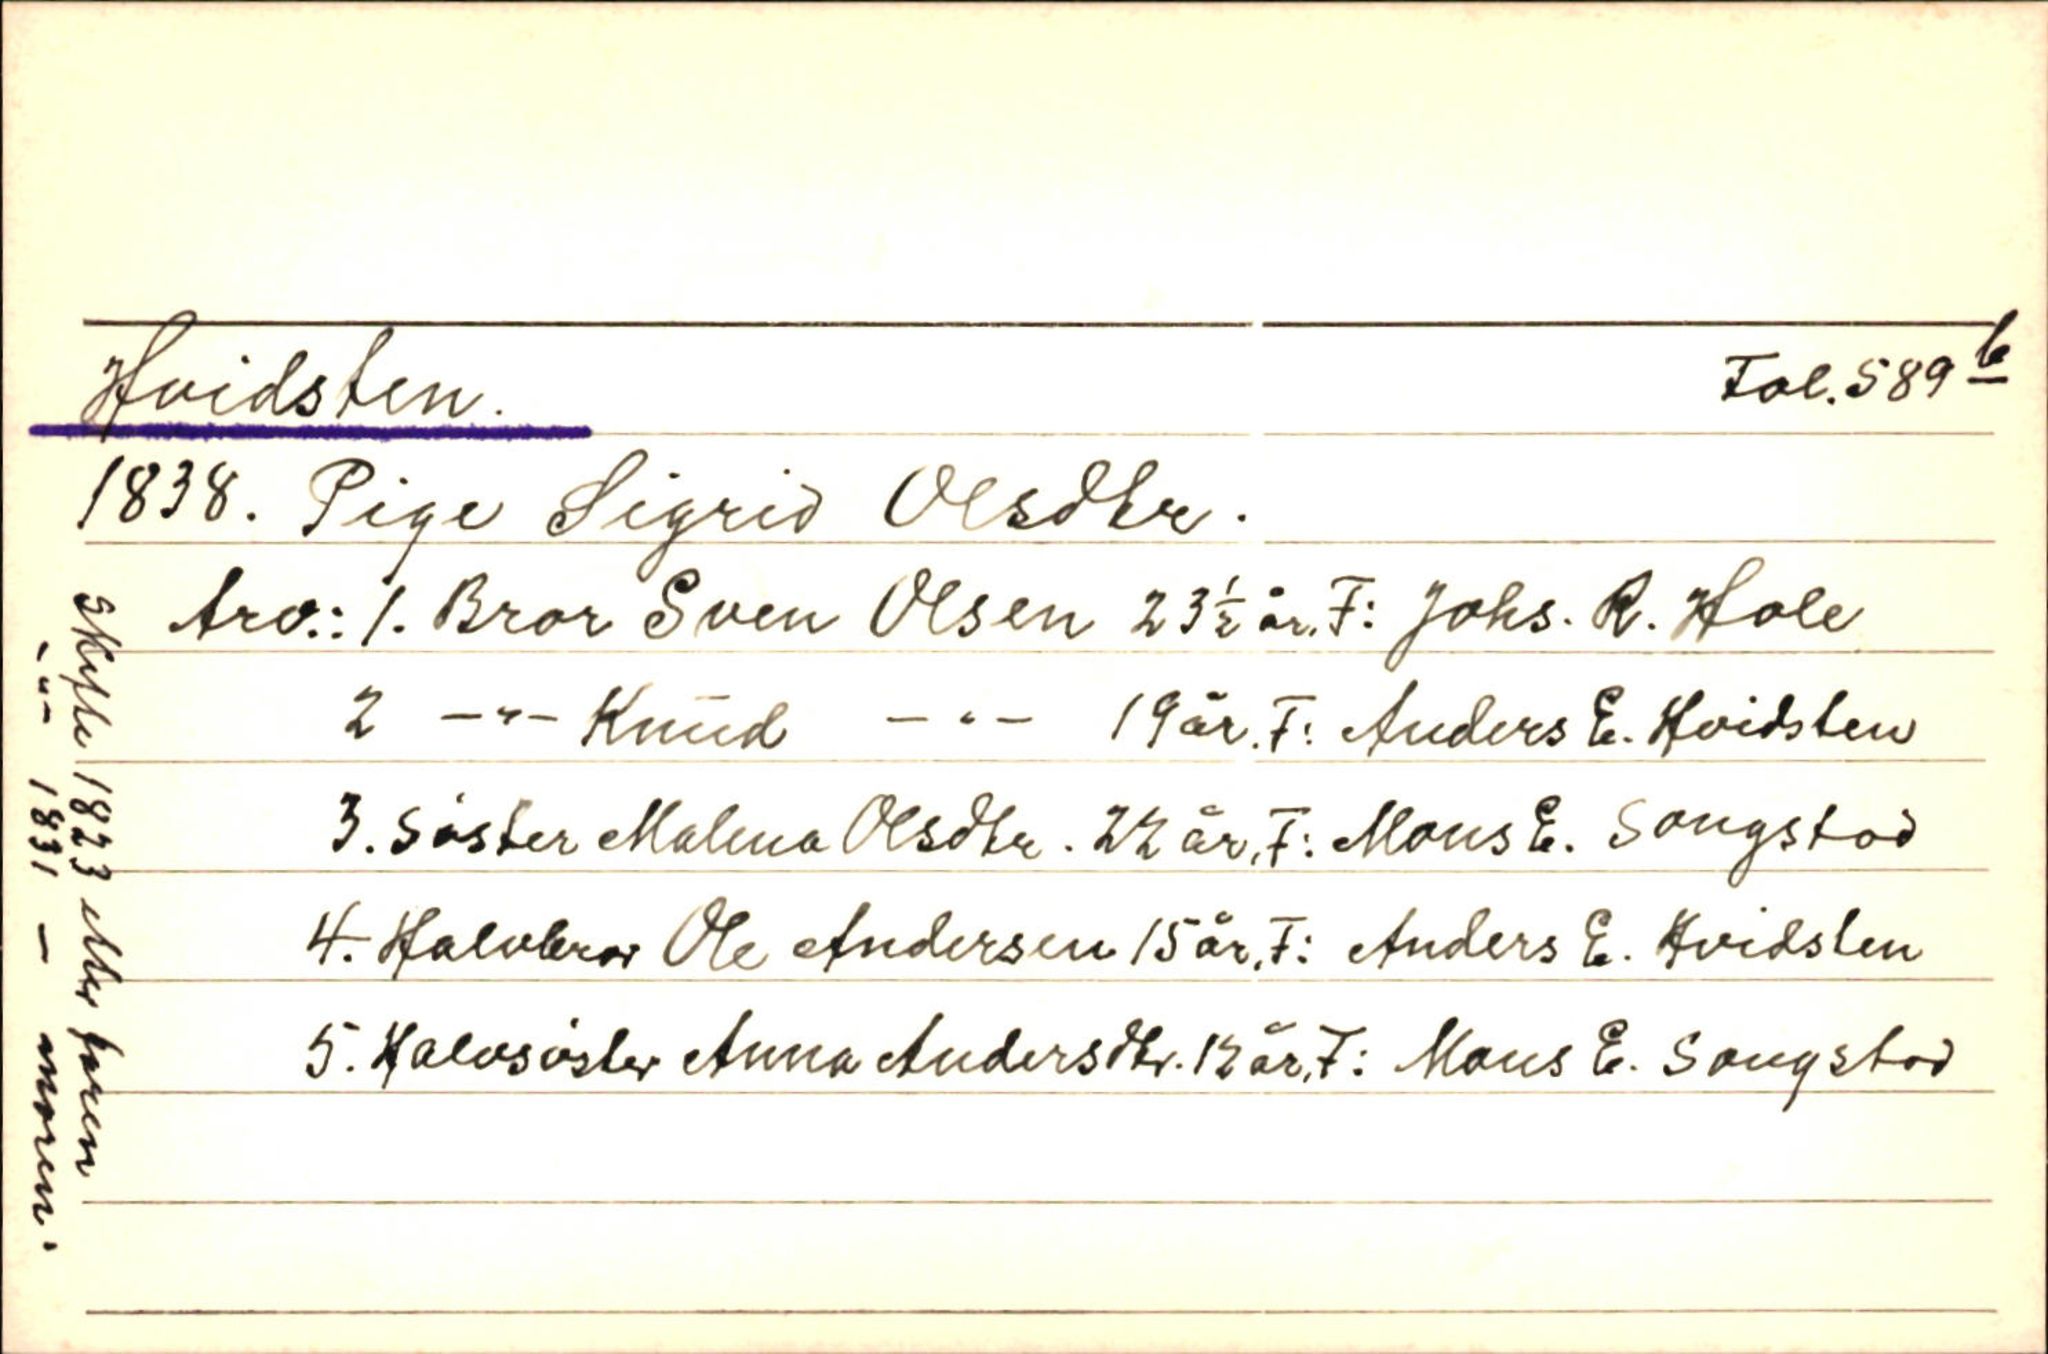 Hvidsten. Fol. 589 b
1838. Pige Sigrid Olsdtr.
Arv.: 1. Bror Sven Olsen 23½ år. F: Johs. R. Hole
2 -"- Knud -"- 19 år. F: Anders E. Hvidsten
3. Søster Malena Olsdtr. 22 år. F: Mons E. Songstad
4. Halvbror Ole Andersen 15 år. F: Anders E. Hvidsten
5. Halvsøster Anna Andersdtr. 12 år. F: Mons E. Songstad
Skifte 1823 etter faren
-"- 1831 - moren.